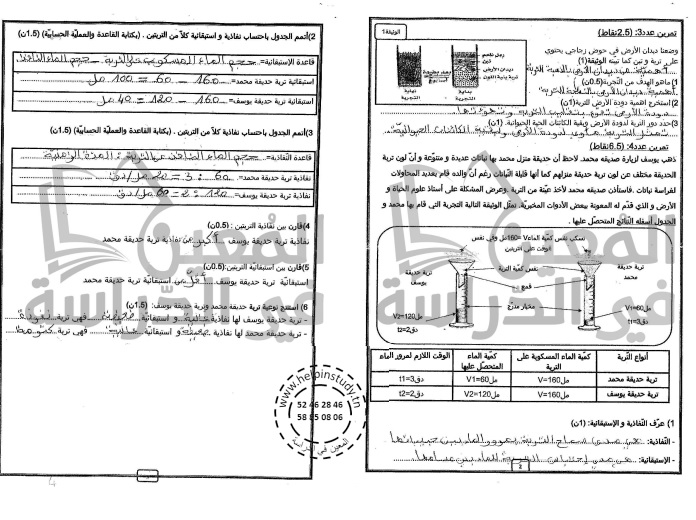 تمرين عدد3: (2.5نقاط)
الوثيقة1
وضعنا ديدان الأرض في حوض زجاجي يحتوي
على تربة و تبن كما تبينه الوثيقة(1)
1)ماهو الهدف من التجربة(0.5ن)
2) استخرج اهمية دودة الأرض للتربة(1ن)
3) حدد دور التربة لدودة الأرض وبقية الكائنات الحية الحيوانية. (1ن)
رمل ناعم
ديدان الأرض
تربة بنية اللون
نهاية التجربة
بداية التجربة
تمرين عدد4: (6.5نقاط)
ذهب يوسف لزيارة صديقه محمد. لاحظ أن حديقة منزل محمد بها نباتات عديدة و متنوعة و أنّ لون تربة
الحديقة مختلف عن لون تربة حديقة منزلهم كما أنها قليلة النّباتات رغم أنّ والده قام بعديد المحاولات
لغراسة نباتات. فاستأذن صديقه محمد لأخذ عيّنة من التربة وعرض المشكلة على أستاذ علوم الحياة و
الأرض و الذي قدّم له المعونة ببعض الأدوات المخبريّة. تمثّل الوثيقة التالية التجربة التي قام بها محمد و
الجدول أسفله النّتائج المتحصّل عليها .
نسكب نفس كمّية الماء V=160مل وفي نفس
الوقت على التربتين
تربة حديقة يوسف
نفس كمّية التربة
تربة حديقة محمد
قمع
مخبار مدرّج
V2=120مل
t2=2دق
V1=60مل
t1=3دق
أنواع التّربة | كمّية الماء المسكوبة على التربة | كمّية الماء المتحصّل عليها | الوقت اللازم لمرور الماء
تربة حديقة محمد | V=160مل | V1=60مل | t1=3دق
تربة حديقة يوسف | V=160مل | V2=120مل | t2=2دق
1 ) عرّف النّفاذية و الإستيقائية: (1ن)
- النّفاذية: هي مدى سماح التربة بمرور الماء بين حبيباتها
- الإستيقائية:
2
2)أتمم الجدول باحتساب نفاذية و استيقائية كلاّ من التربتين . (بكتابة القاعدة والعمليّة الحسابيّة) (1.5ن)
قاعدة الإستيقائية=
استيقائية تربة حديقة محمد= 160 – 60 = 100 مل
استيقائية تربة حديقة يوسف= 160 – 120 = 40 مل
3)أتمم الجدول باحتساب نفاذية كلاّ من التربتين . (بكتابة القاعدة والعمليّة الحسابيّة) (1.5ن)
قاعدة النّفاذية=
نفاذية تربة حديقة محمد= 60 : 3 = 20 مل/دق
نفاذية تربة حديقة يوسف= 120 : 2 = 60 مل/دق
4)قارن بين نفاذية التربتين :(0.5ن)
نفاذية تربة حديقة يوسف أكبر من نفاذية تربة حديقة محمد
5)قارن بين استيقائية التربتين:(0.5ن)
استيقائية تربة حديقة يوسف أقل من استيقائيّة تربة حديقة محمد
6) استنتج نوعية تربة حديقة محمد وتربة حديقة يوسف: (1.5ن)
- تربة حديقة يوسف لها نفاذية عالية و استيقائية ضعيفة فهي تربة نفوذة
- تربة حديقة محمد لها نفاذية ضعيفة و استيقائية عالية فهي تربة
www.helpinstudy.tn
52 46 28 46
58 85 08 06
المعين في الدراسة
4